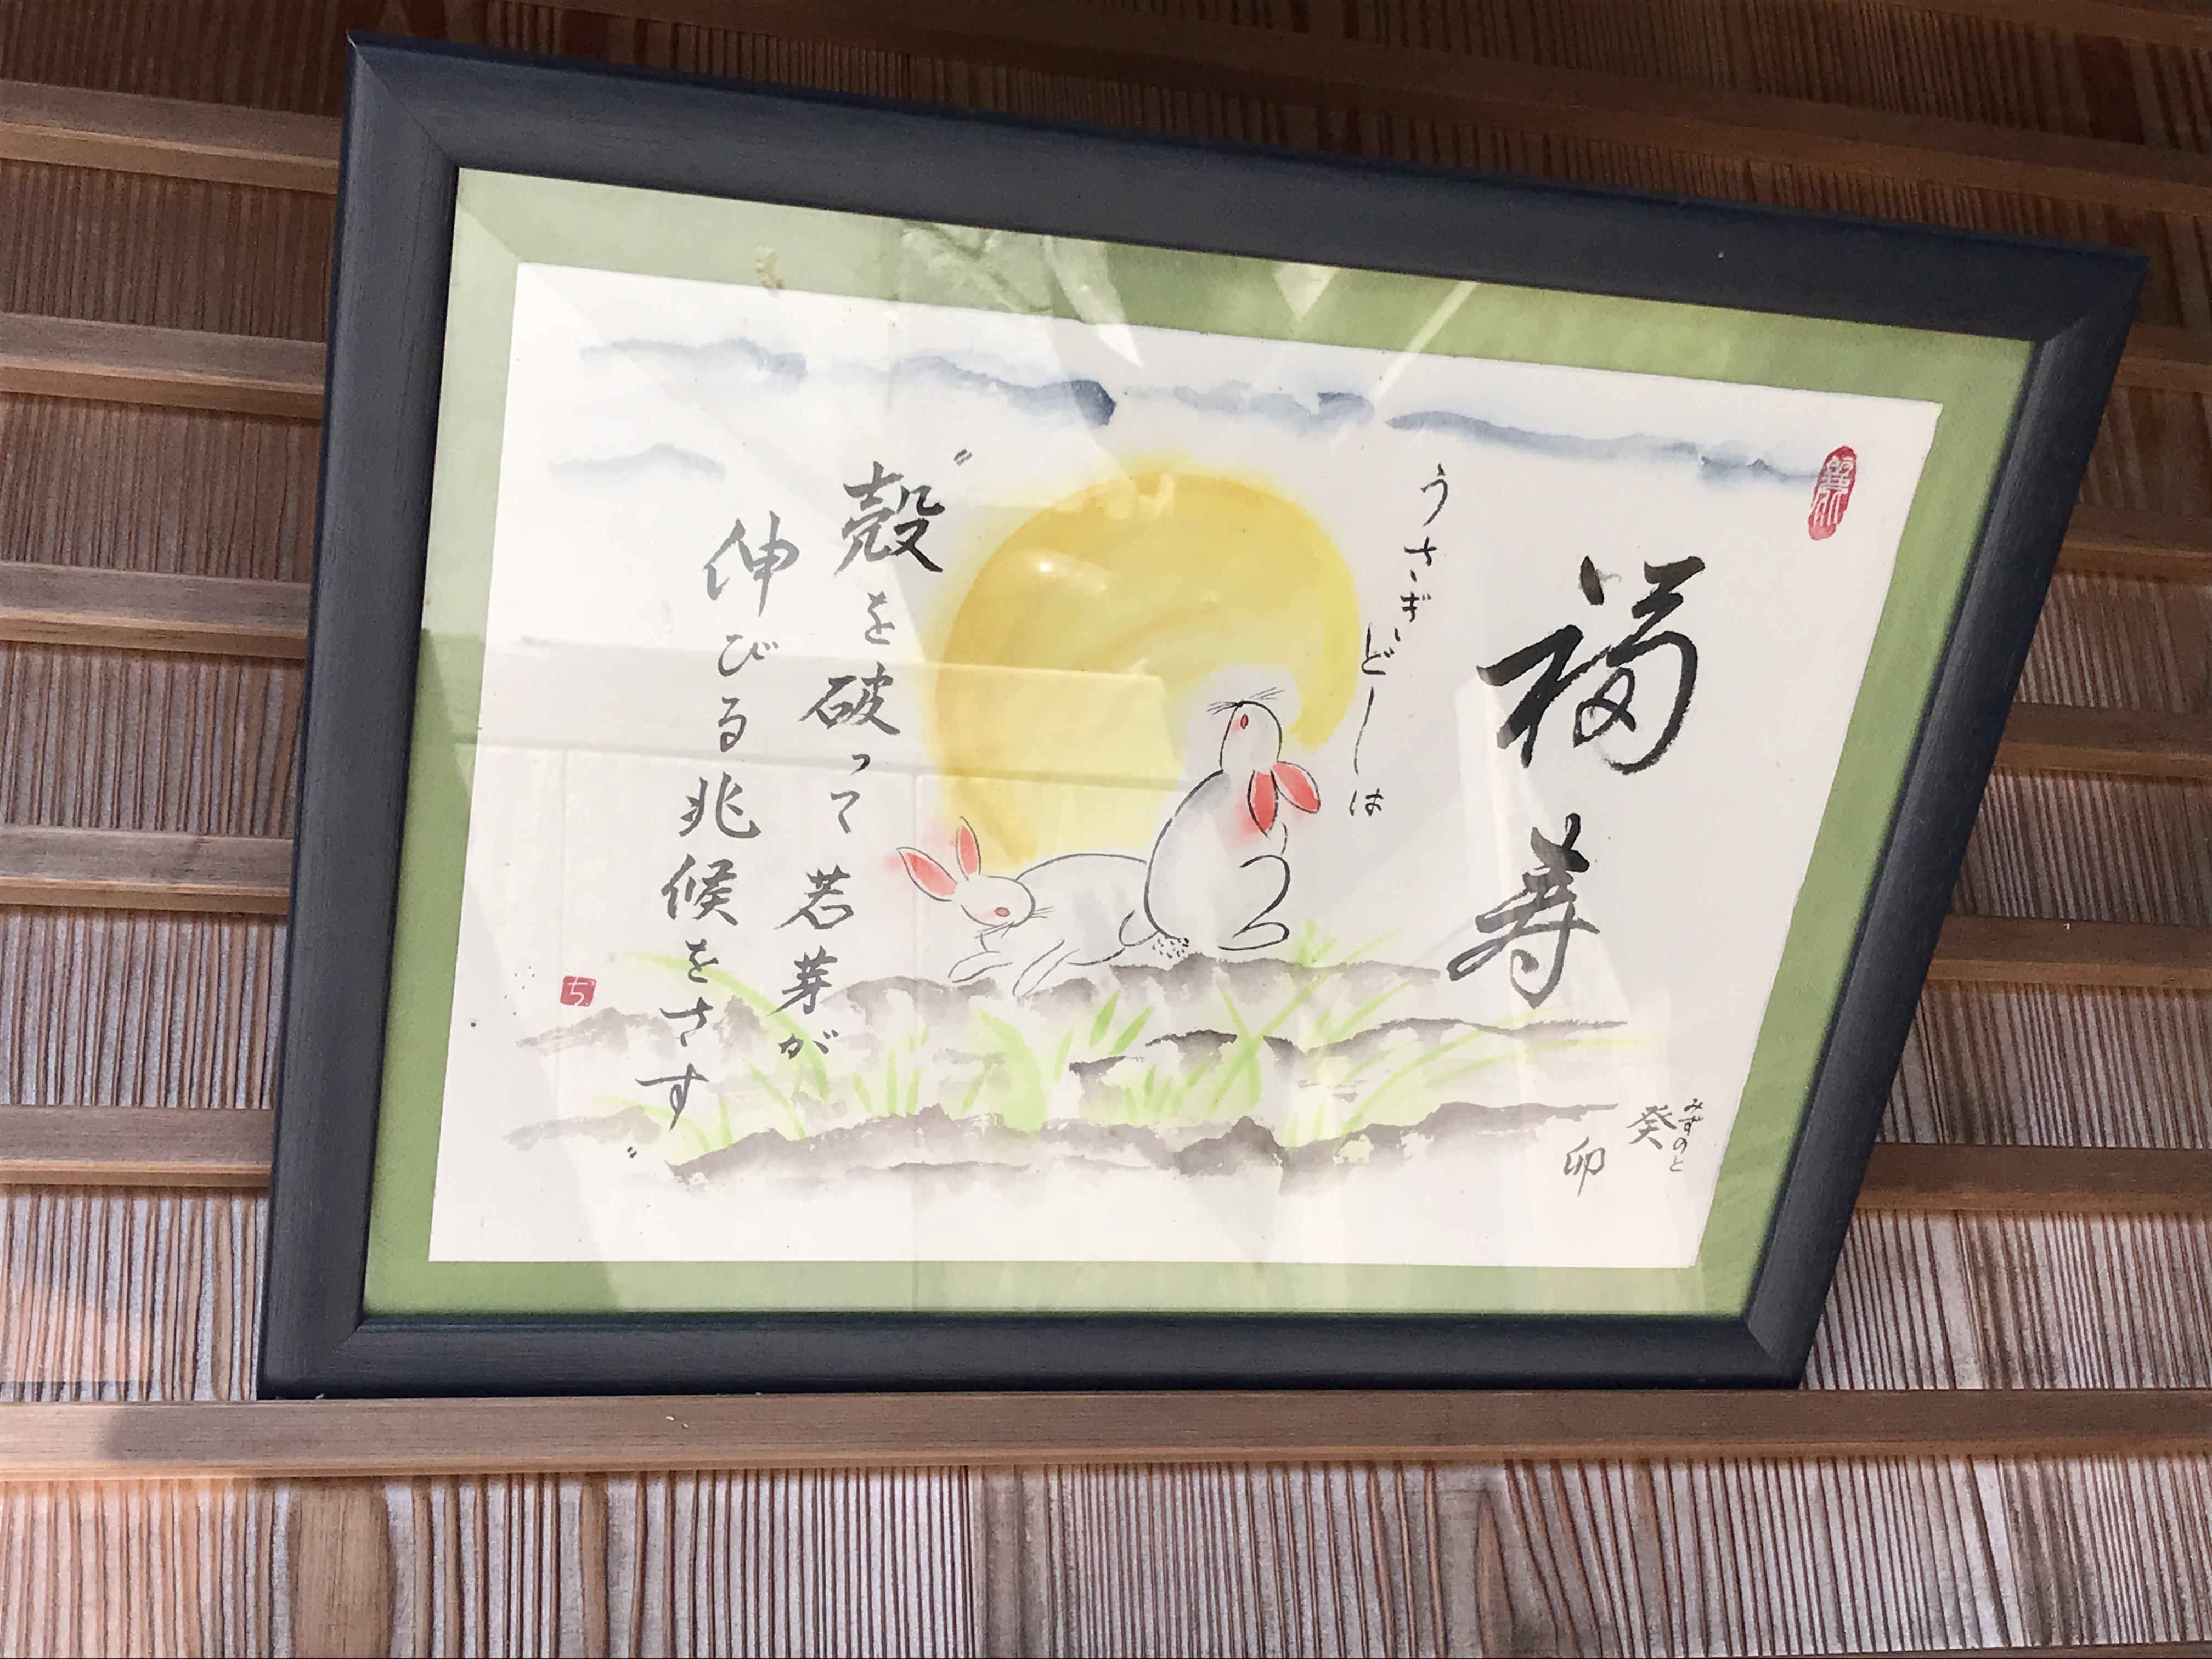 福寿
うさぎどしは
〝殻を破って若芽が
伸びる兆候をさす〟
みずのと
癸卯
ち